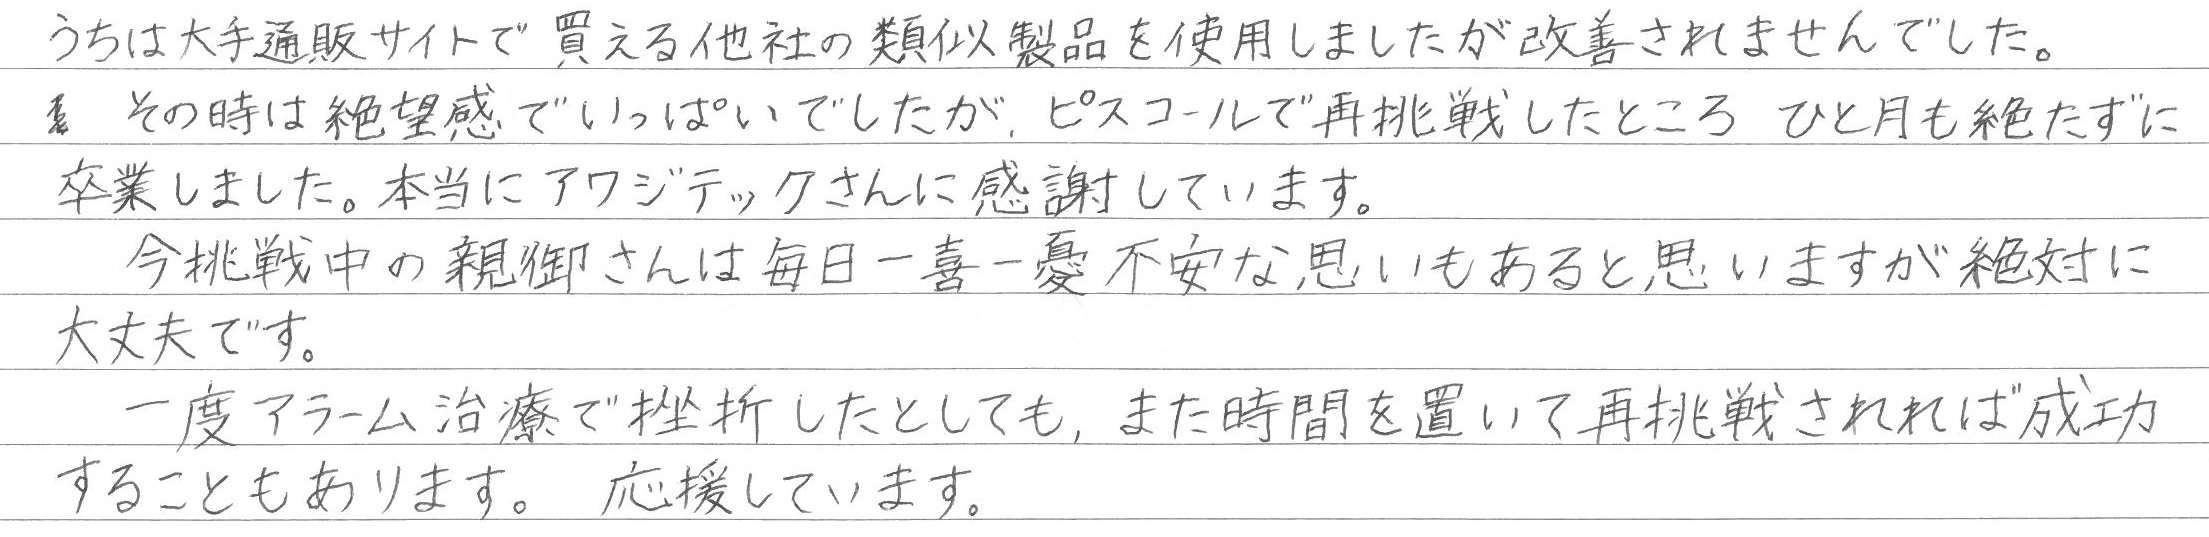 うちは大手通販サイトで買える他社の類似製品を使用しましたが改善されませんでした。
その時は絶望感でいっぱいでしたが、ピスコールで再挑戦したところ ひと月も絶たずに
卒業しました。本当にアワジテックさんに感謝しています。
今挑戦中の親御さんは毎日一喜一憂不安な思いもあると思いますが絶対に
大丈夫です。
一度アラーム治療で挫折したとしても、また時間を置いて再挑戦されれば成功
することもあります。 応援しています。